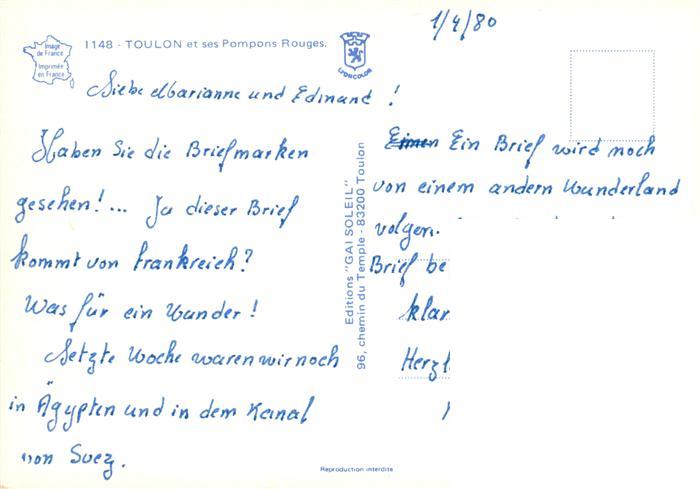 1/4/80
Image de France
Imprimée en France
1148 - TOULON et ses Pompons Rouges.
LYONCOLOR
Liebe Marianne und Edmund !
Haben Sie die Briefmarken
gesehen!... Ja dieser Brief
kommt von Frankreich?
Was für ein Wunder!
Letzte Woche waren wir noch
in Ägypten und in dem Kanal
von Suez.
Editions "GAI SOLEIL"
96, chemin du Temple - 83200 Toulon
Einen Ein Brief wird noch
von einem andern Wunderland
volgen.
Brief be
klar
Herzl
Reproduction interdite